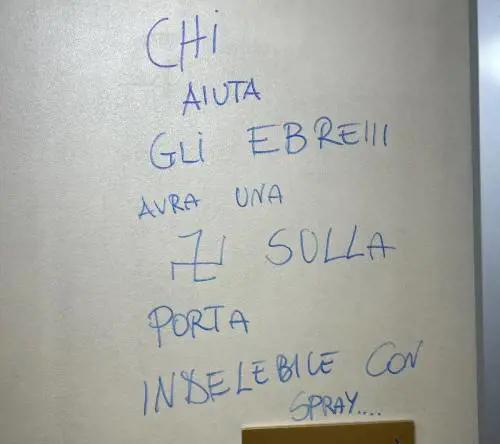 CHI
AIUTA
GLI EBREIII
AVRA UNA
卍 SULLA
PORTA
INDELEBILE CON
SPRAY....